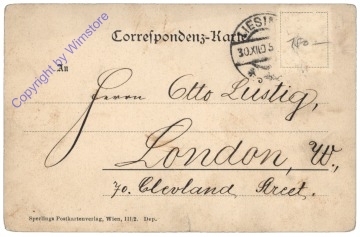 Correspondenz-Karte
30.XII.05
150.—
An
Herrn Otto Lustig,
London, W.,
70. Clevland Street.
Sperlings Postkartenverlag, Wien, III/2. Dep.
Copyright by Wimstore